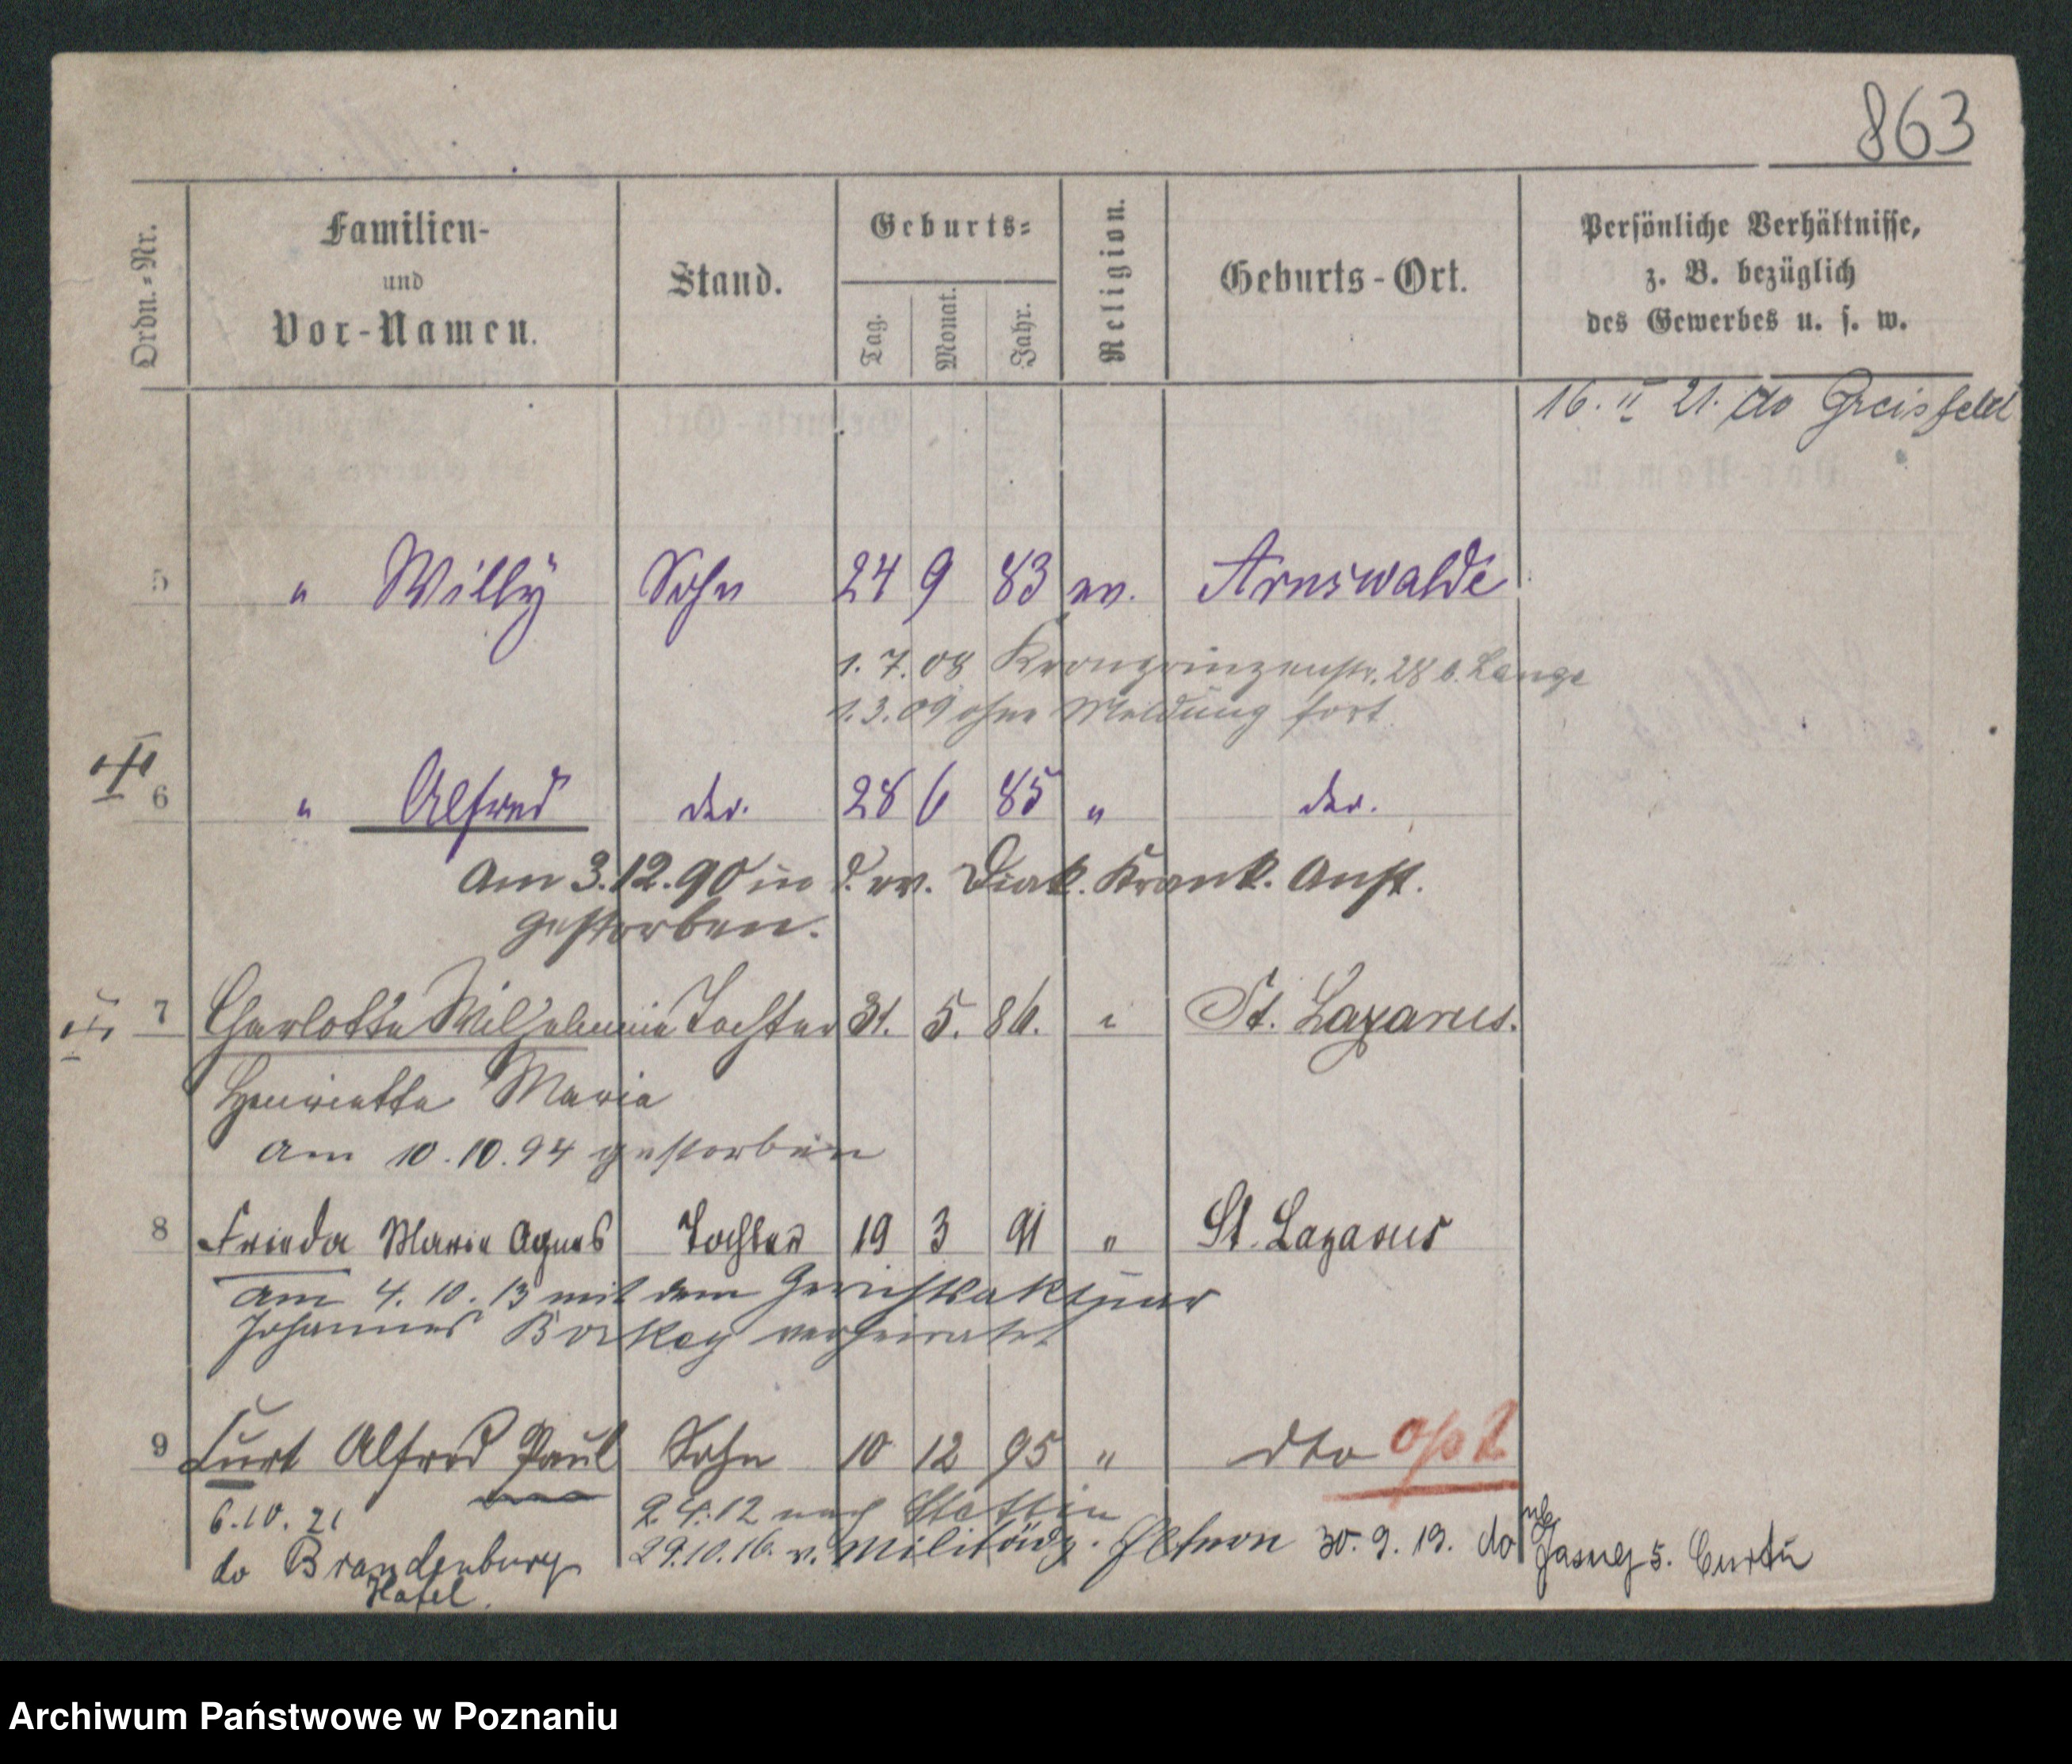 863
Ordn.-Nr.
Familien-
und
Vor-Namen.
Stand.
Geburts-
Tag.
Monat.
Jahr.
Religion.
Geburts-Ort.
Persönliche Verhältnisse,
z. B. bezüglich
des Gewerbes u. s. w.
16. II 21. do Greisfeld
5 " Willy Sohn 24 9 83 ev. Arnswalde
1. 7. 08 Kronprinzenstr. 28 b. Lange
1. 3. 09 ohne Meldung fort
6 " Alfred do. 28 6 85 " do.
Am 3.12.90 in d. ev. Diak. Krank. Anst.
gestorben.
7 Charlotte Wilhelmine Tochter 31. 5. 86. " St. Lazarus.
Henriette Maria
am 10.10.94 gestorben
8 Frieda Marie Agnes Tochter 19 3 91 " St. Lazarus
am 4. 10. 13 mit dem Gerichtsaktuar
Johannes verheiratet
9 Curt Alfred Paul Sohn 10 12 95 " dto opt
6.10.21 2.4.12 nach Stettin
do Brandenburg 29.10.16. v. Militär 30.9.19. do
Hafel.